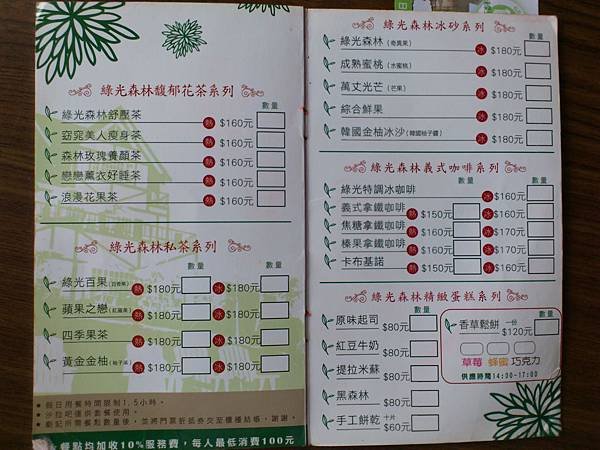 綠光森林馥郁花茶系列
數量
綠光森林舒壓茶 熱 $160元
窈窕美人瘦身茶 熱 $160元
森林玫瑰養顏茶 熱 $160元
戀戀薰衣好睡茶 熱 $160元
浪漫花果茶 熱 $160元
綠光森林私茶系列
數量 數量
綠光百果(百香果) 熱 $180元 冰 $180元
蘋果之戀(紅蘋果) 熱 $180元 冰 $180元
四季果茶 熱 $180元 冰 $180元
黃金金柚(柚子茶) 熱 $180元 冰 $180元
假日用餐時間限制1.5小時。
沙拉吧僅供套餐使用。
劃記所需餐點數量後,並將門票折抵券交至櫃檯結帳,謝謝。
餐點均加收10%服務費,每人最低消費100元
綠光森林冰砂系列
數量
綠光森林(奇異果) 冰 $180元
成熟蜜桃(水蜜桃) 冰 $180元
萬丈光芒(芒果) 冰 $180元
綜合鮮果 冰 $180元
韓國金柚冰沙(韓國柚子醬) 冰 $180元
綠光森林義式咖啡系列
數量
綠光特調冰咖啡 冰 $160元
義式拿鐵咖啡 熱 $150元 冰 $160元
焦糖拿鐵咖啡 熱 $160元 冰 $170元
榛果拿鐵咖啡 熱 $160元 冰 $170元
卡布基諾 熱 $150元 冰 $160元
綠光森林精緻蛋糕系列
數量
原味起司 $80元
紅豆牛奶 $80元
提拉米蘇 $80元
黑森林 $80元
手工餅乾 十片 $60元
數量
香草鬆餅 一份 $120元
草莓 蜂蜜 巧克力
供應時間14:00-17:00